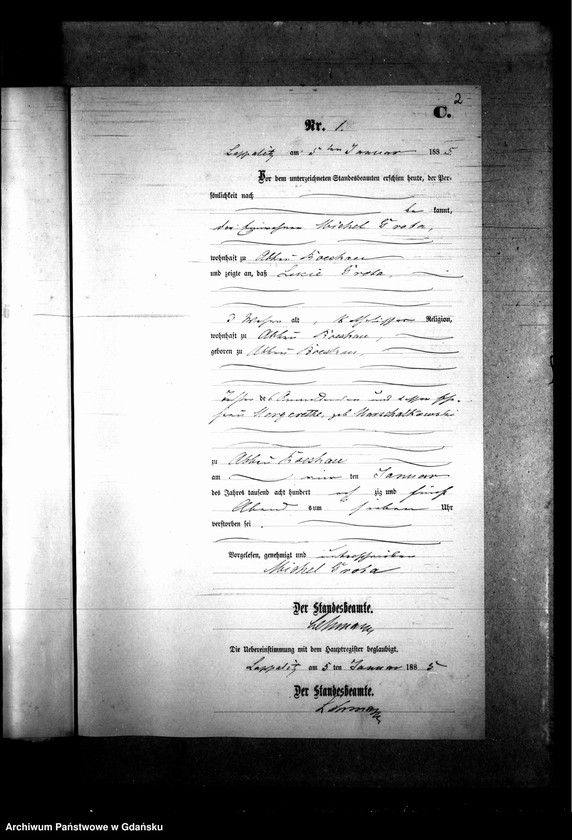 2
C.
Nr. 1.
am 5 ten Januar 1885
Vor dem unterzeichneten Standesbeamten erschien heute, der Per-
sönlichkeit nach
be kannt,
der Einwohner Michel Grota,
wohnhaft zu Abbau Koeshau
und zeigte an, daß Lucie Grota,
3 Wochen alt, katholischer Religion,
wohnhaft zu Abbau Koeshau,
geboren zu Abbau Koeshau,
Tochter des Anmeldenden und dessen Ehe-
frau Margarethe, geb Marschalkowski
zu Abbau Koeshau
am vier ten Januar
des Jahres tausend acht hundert acht zig und fünf
Abend s um sieben Uhr
verstorben sei
Vorgelesen, genehmigt und unterschrieben
Michel Grota
Der Standesbeamte.
Lehmann
Die Uebereinstimmung mit dem Hauptregister beglaubigt.
am 5 ten Januar 1885
Der Standesbeamte.
Lehmann
Archiwum Państwowe w Gdańsku